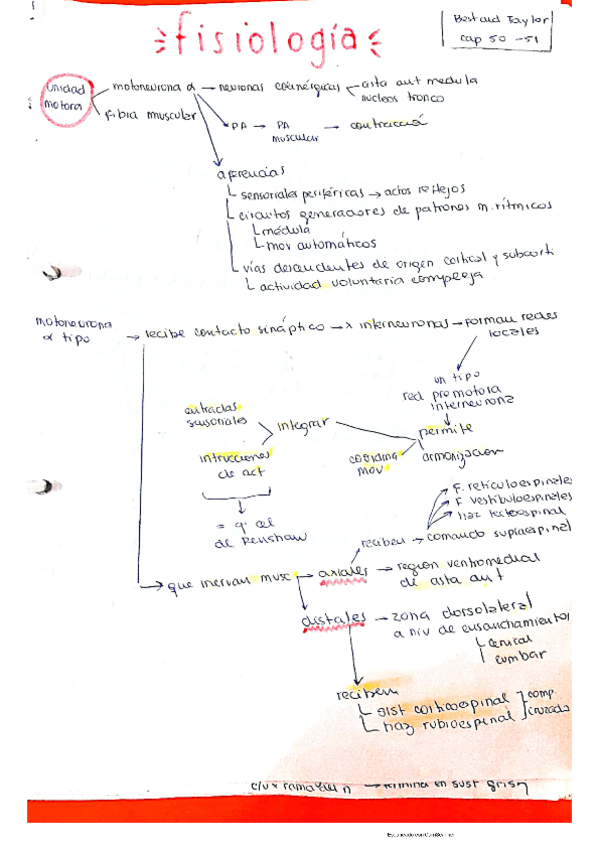 fisiología
Bestaud Taylor
cap 50 - 51
Unidad motora
motoneurona α → neuronas colinérgicas
asta ant medula
núcleos tronco
fibra muscular
PA → PA muscular → contracción
aferencias
sensoriales periféricas → actos reflejos
circuitos generadores de patrones m. rítmicos
médula
mov automáticos
vías descendentes de origen cortical y subcorti
actividad voluntaria compleja
motoneurona α tipo
→ recibe contacto sináptico → x interneuronas → forman redes locales
un tipo
red promotora
interneurona
permite
coordina mov
armonizacion
integrar
entradas sensoriales
intrucciones de act
= q' cel
de Renshaw
que inervan musc → axiales → region ventromedial
de asta ant
reciben → comando supraespinal
F. reticuloespinales
F vestibuloespinales
Haz tectoespinal
distales → zona dorsolateral
a niv de ensanchamiento
cervical
lumbar
reciben
sist corticoespinal
haz rubroespinal
comp. cruzado
→ termina en sust gris
Escaneado con CamScanner